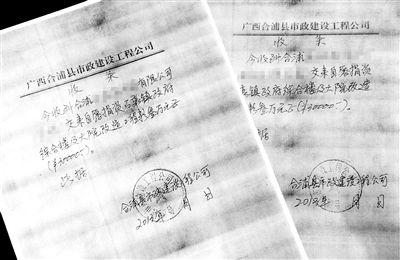 广西合浦县市政建设工程公司
收 条
今收到合浦 有限公司
交来自愿捐资 镇政府
综合楼及大院改造工程款叁万元正
(¥30000一)。
此据
合浦县市政建设工程公司
2013年 月 日
广西合浦县市政建设工程公司
收 条
今收到合浦
交来自愿捐资
镇政府综合楼及大院改造
款叁万元正(¥30000一)
此据
合浦县市政建设工程公司
2013年 月 日